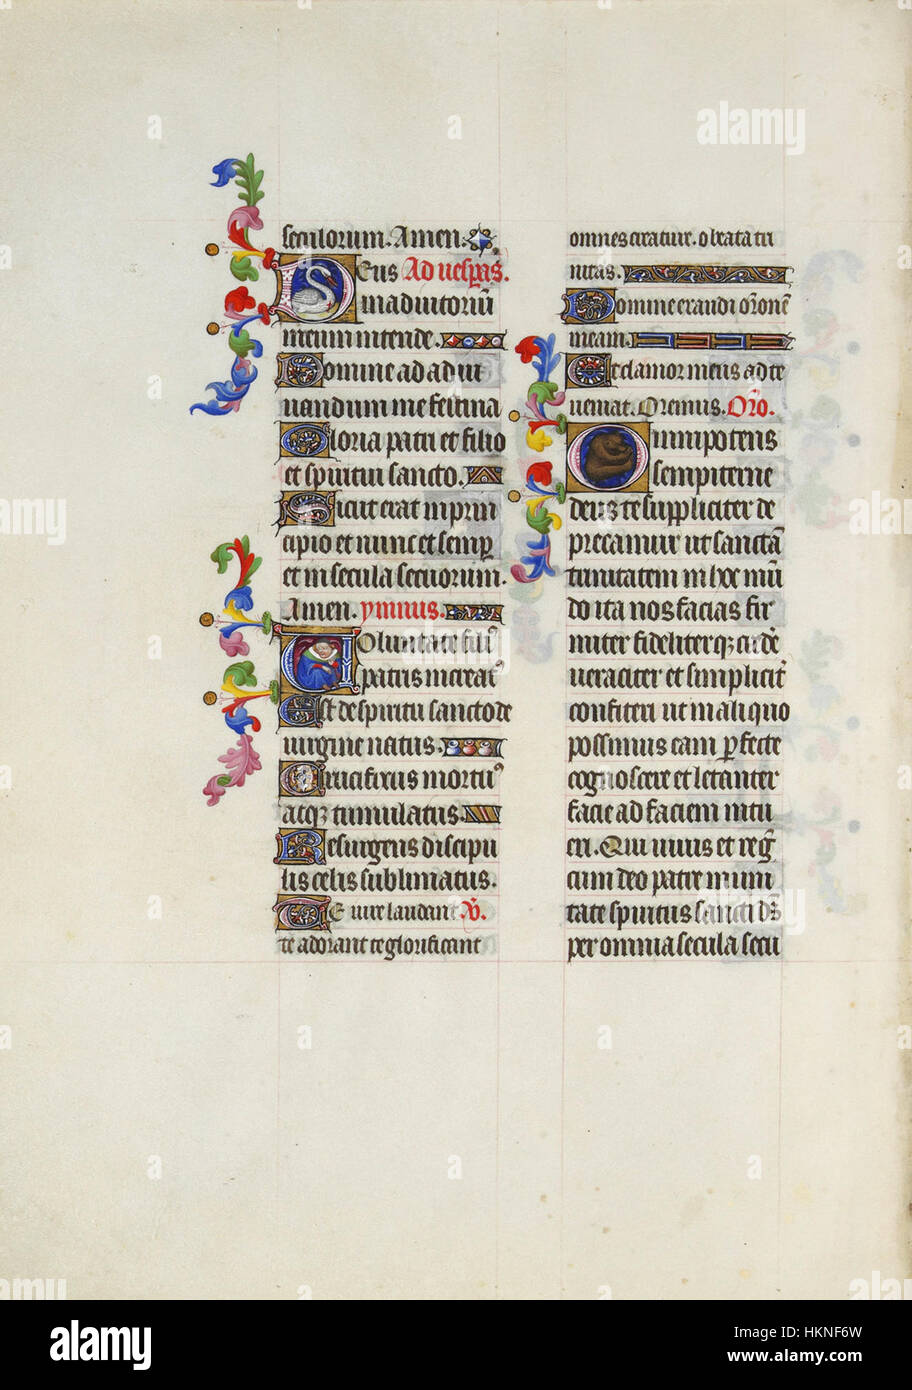 seculorum. Amen.
Deus Ad vesp̃as.
in adiutoriũ
meum intende.
Domine ad adiu
uandum me festina
Gloria patri et filio
et spiritui sancto.
Sicut erat in prin
cipio et nunc et semp̱
et in secula seculorum.
Amen. ymnus.
Uoluntate filiꝰ
patris increatꝰ
Est de spiritu sancto de
uirgine natus.
Crucifixus mortuꝰ
atqꝫ tumulatus.
Resurgens discipu
lis celis sublimatus.
Te iure laudant V̉.
te adorant te glorificant
omnes creature. o beata tri
nitas.
Domine exaudi or̃onẽ
meam.
Et clamor meus ad te
ueniat. Oremus. Or̃o.
Omnipotens
sempiterne
deus te suppliciter de
precamur ut sanctã
trinitatem in hoc mũ
do ita nos facias fir
miter fideliterqꝫ credẽ
ueraciter et simplicit̃
confiteri ut in aliquo
possimus eam ꝑfecte
cognoscere et letanter
facie ad faciem intu
eri. Qui uiuis et regñ
cum deo patre in uni
tate spiritus sancti ds̃
per omnia secula secu
a alamy stock photo
alamy
Image ID: HKNF6W
www.alamy.com